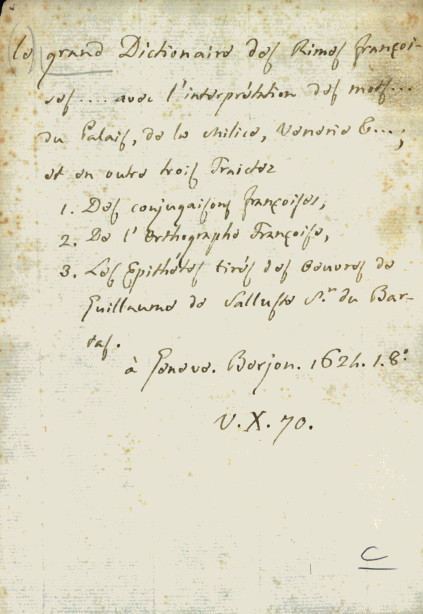 (le) grand Dictionaire des Rimes françoi-
ses .... avec l'interprétation des mots ...
du Palais, de la milice, Venerie &...;
et en outre trois Traictez
1. Des conjugaisons françoises,
2. De l'Orthographe Françoise,
3. Les Epithétes tirés des Oeuvres de
Guillaume de Salluste Sr. du Bar-
tas.
à Geneve. Berjon. 1624. 1. 8°
V. X. 70.
C